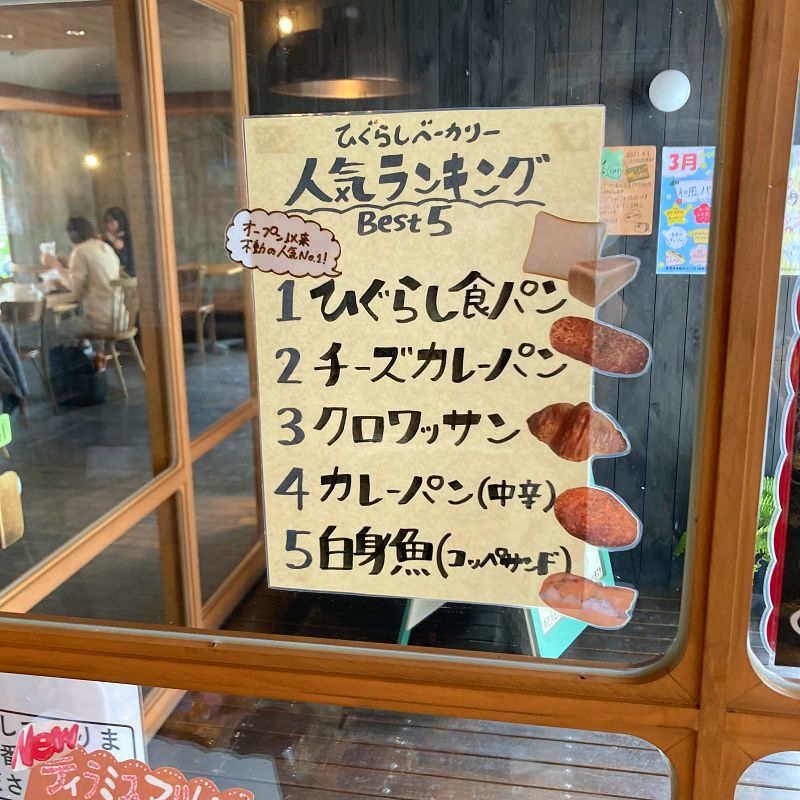 ひぐらしベーカリー
人気ランキング
Best 5
オープン以来
不動の人気No.1!
1 ひぐらし食パン
2 チーズカレーパン
3 クロワッサン
4 カレーパン(中辛)
5 白身魚(コッペサンド)
3月
New
ティラミス